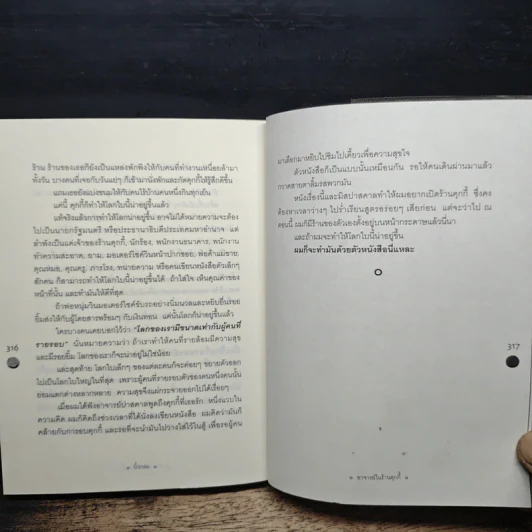 ร้าน ร้านของเธอก็ยังเป็นแหล่งพักพิงให้กับคนที่ทำงานเหนื่อยล้ามา
ทั้งวัน บางคนที่เจอกับวันแย่ๆ ก็เข้ามานั่งพักและกัดคุกกี้ให้รู้สึกดีขึ้น
แถมเธอยังแบ่งขนมให้กับคนไร้บ้านคนหนึ่งกินทุกเย็น
แค่นี้ คุกกี้ก็ทำให้โลกใบนี้น่าอยู่ขึ้นแล้ว
แท้จริงแล้วการทำให้โลกน่าอยู่ขึ้น อาจไม่ได้หมายความจะต้อง
ไปเป็นนายกรัฐมนตรี หรือประธานาธิบดีประเทศมหาอำนาจ แต่
ลำพังเป็นแค่เจ้าของร้านคุกกี้, นักร้อง, พนักงานธนาคาร, พนักงาน
ทำความสะอาด, ยาม, มอเตอร์ไซค์วินหน้าปากซอย, พ่อค้าแม่ขาย,
คุณหมอ, คุณครู, ภารโรง, ทนายความ หรือคนเขียนหนังสือตัวเล็กๆ
สักคน ก็สามารถทำให้โลกใบนี้น่าอยู่ขึ้นได้ ถ้าใส่ใจ เห็นคุณค่าของ
หน้าที่นั้น และทำมันให้ดีที่สุด
ถ้าพ่อหนุ่มวินมอเตอร์ไซค์ขับรถอย่างนิ่มนวลและหยิบยื่นรอย
ยิ้มส่งให้กับผู้โดยสารพร้อมๆ กับเงินทอน แค่นั้นโลกก็น่าอยู่ขึ้นแล้ว
ใครบางคนเคยบอกไว้ว่า "โลกของเรามีขนาดเท่ากับผู้คนที่
รายรอบ" นั่นหมายความว่า ถ้าเราทำให้คนที่รายล้อมมีความสุข
และมีรอยยิ้ม โลกของเราก็จะน่าอยู่ไม่ใช่น้อย
และสุดท้าย โลกใบเล็กๆ ของแต่ละคนก็จะค่อยๆ ขยายตัวออก
ไปเป็นโลกใบใหญ่ในที่สุด เพราะผู้คนที่รายรอบตัวของคนหนึ่งคนนั้น
ย่อมแตกต่างหลากหลาย ความสุขจึงแผ่กระจายออกไปได้เรื่อยๆ
เมื่อผมได้ฟังอาจารย์ปาสคาลพูดถึงคุกกี้ที่เธอรัก หนึ่งแวบใน
ความคิด ผมก็คิดถึงช่วงเวลาที่ได้นั่งลงเขียนหนังสือ ผมคิดว่ามันก็
คล้ายกับการอบคุกกี้ และรอที่จะนำมันไปวางใส่ไว้ในตู้ เพื่อรอผู้คน
316
• นิ้วกลม •
มาเลือกมาหยิบไปชิมไปเคี้ยวเพื่อความสุขใจ
ตัวหนังสือก็เป็นแบบนั้นเหมือนกัน รอให้คนเดินผ่านมาแล้ว
กวาดสายตาลิ้มรสพวกมัน
หนังสือเรื่องนี้และมิสปาสคาลทำให้ผมอยากเปิดร้านคุกกี้ ซึ่งคง
ต้องหาเวลาว่างๆ ไปร่ำเรียนสูตรอร่อยๆ เสียก่อน แต่จะว่าไป ณ
ตอนนี้ ผมก็มีร้านของตัวเองตั้งอยู่บนหน้ากระดาษแล้วนี่นา
และถ้าผมจะทำให้โลกใบนี้น่าอยู่ขึ้น
ผมก็จะทำมันด้วยตัวหนังสือนี่แหละ
317
• อาจารย์ในร้านคุกกี้ •